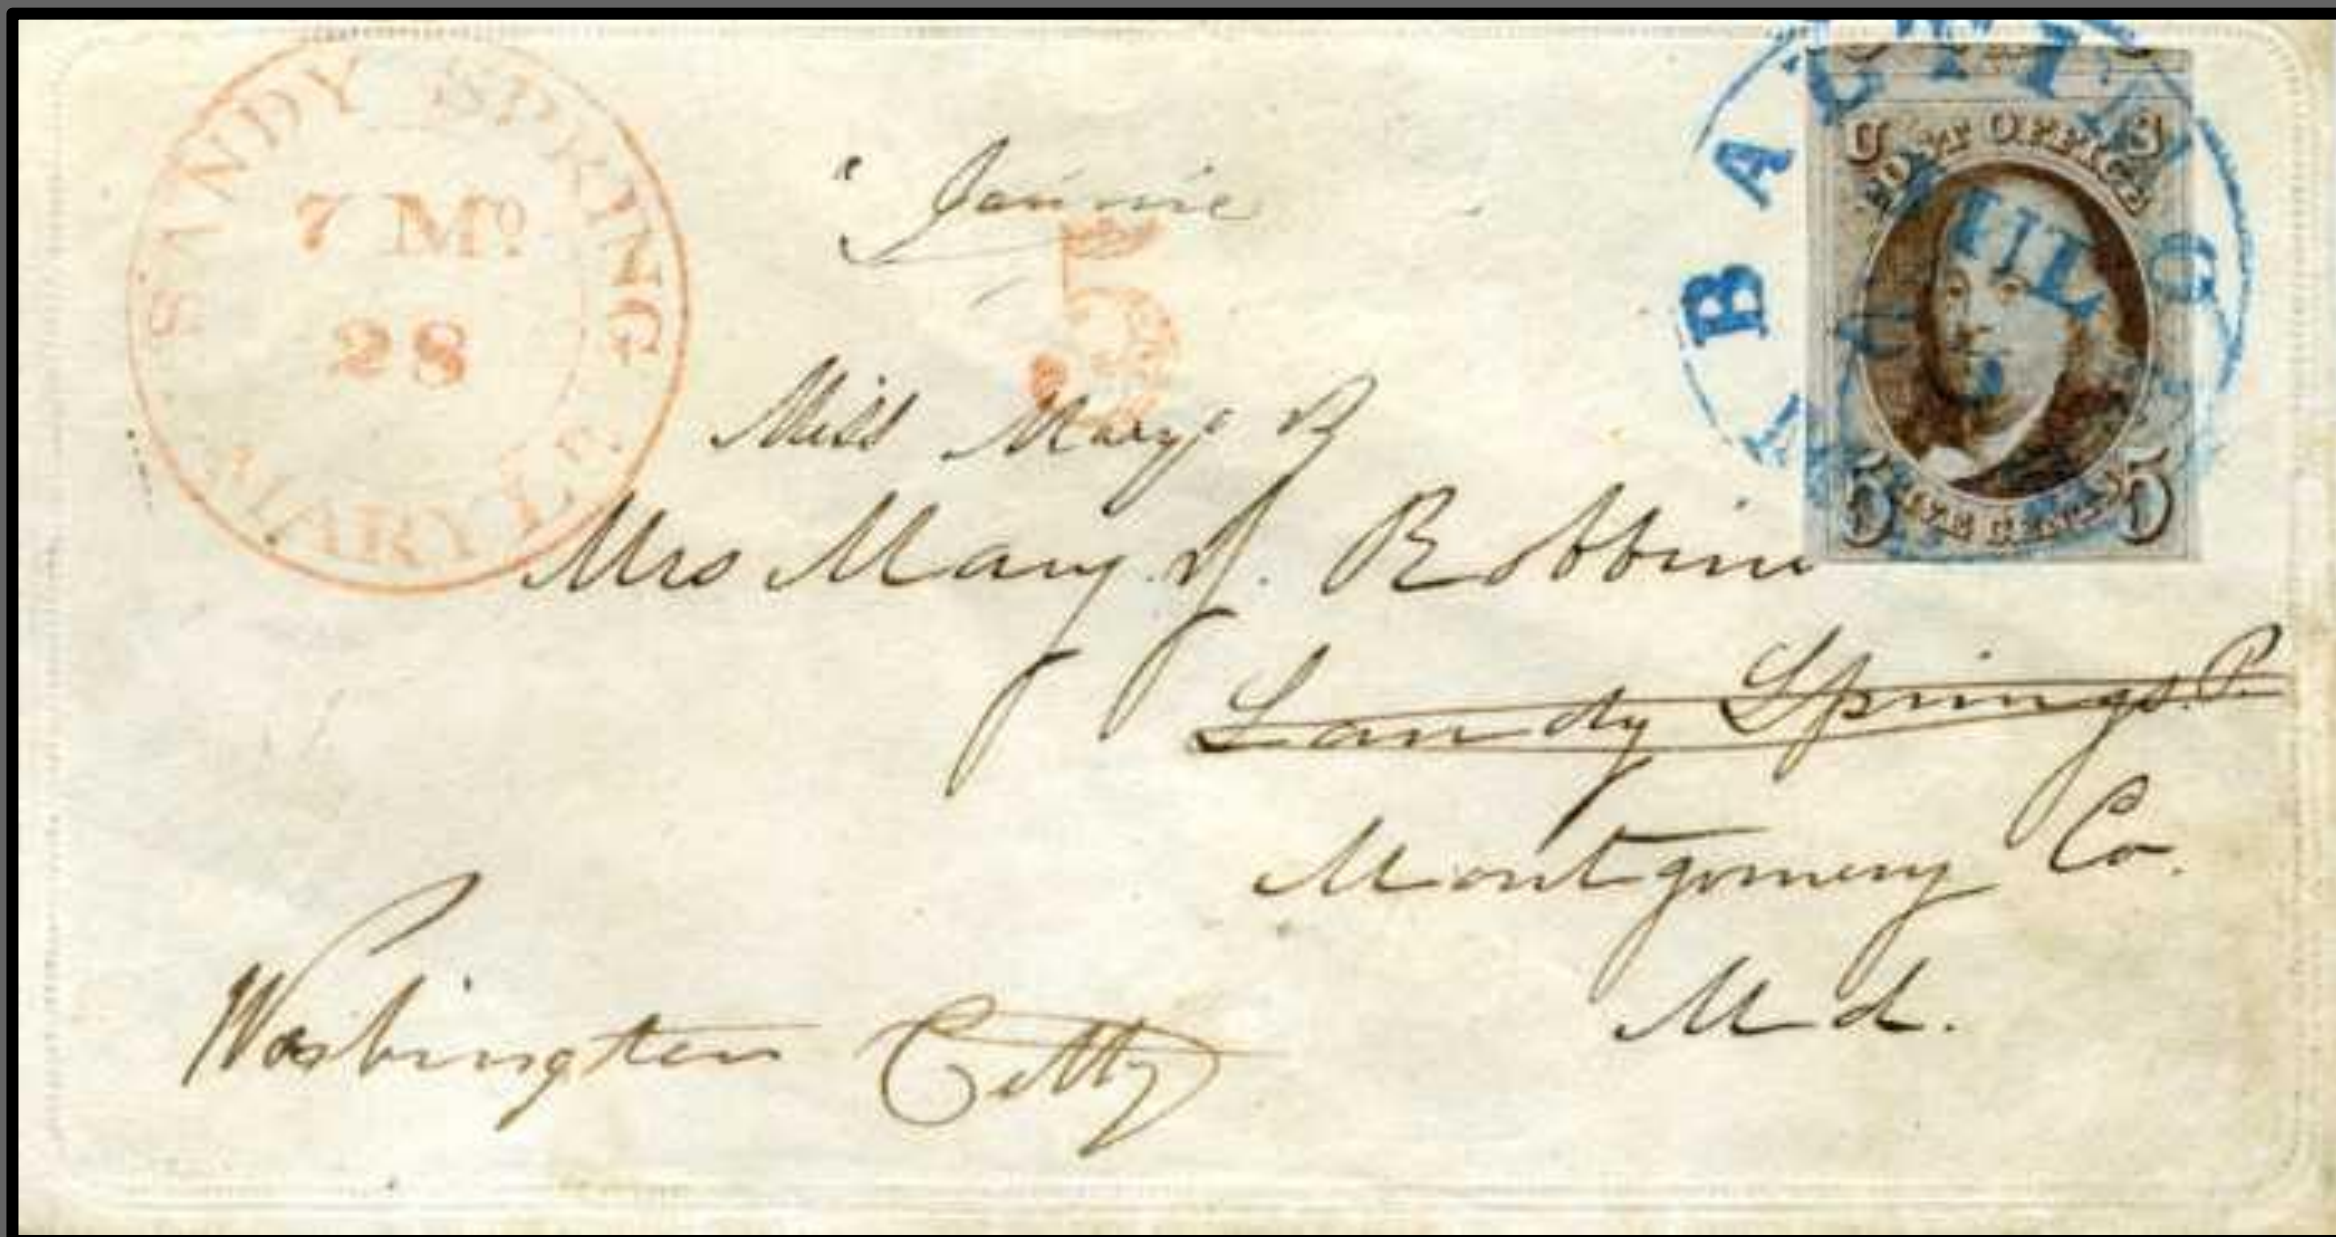 SANDY SPRING
7 Mº
28
MARYLD.
Jannie
5
BALTIMO
JUL
5 5
POST OFFICE
FIVE CENTS
5 5
Miss Mary R
Mrs Mary J. Robbins
Sandy Springs. P.
Montgomery Co.
Md.
Washington Citty